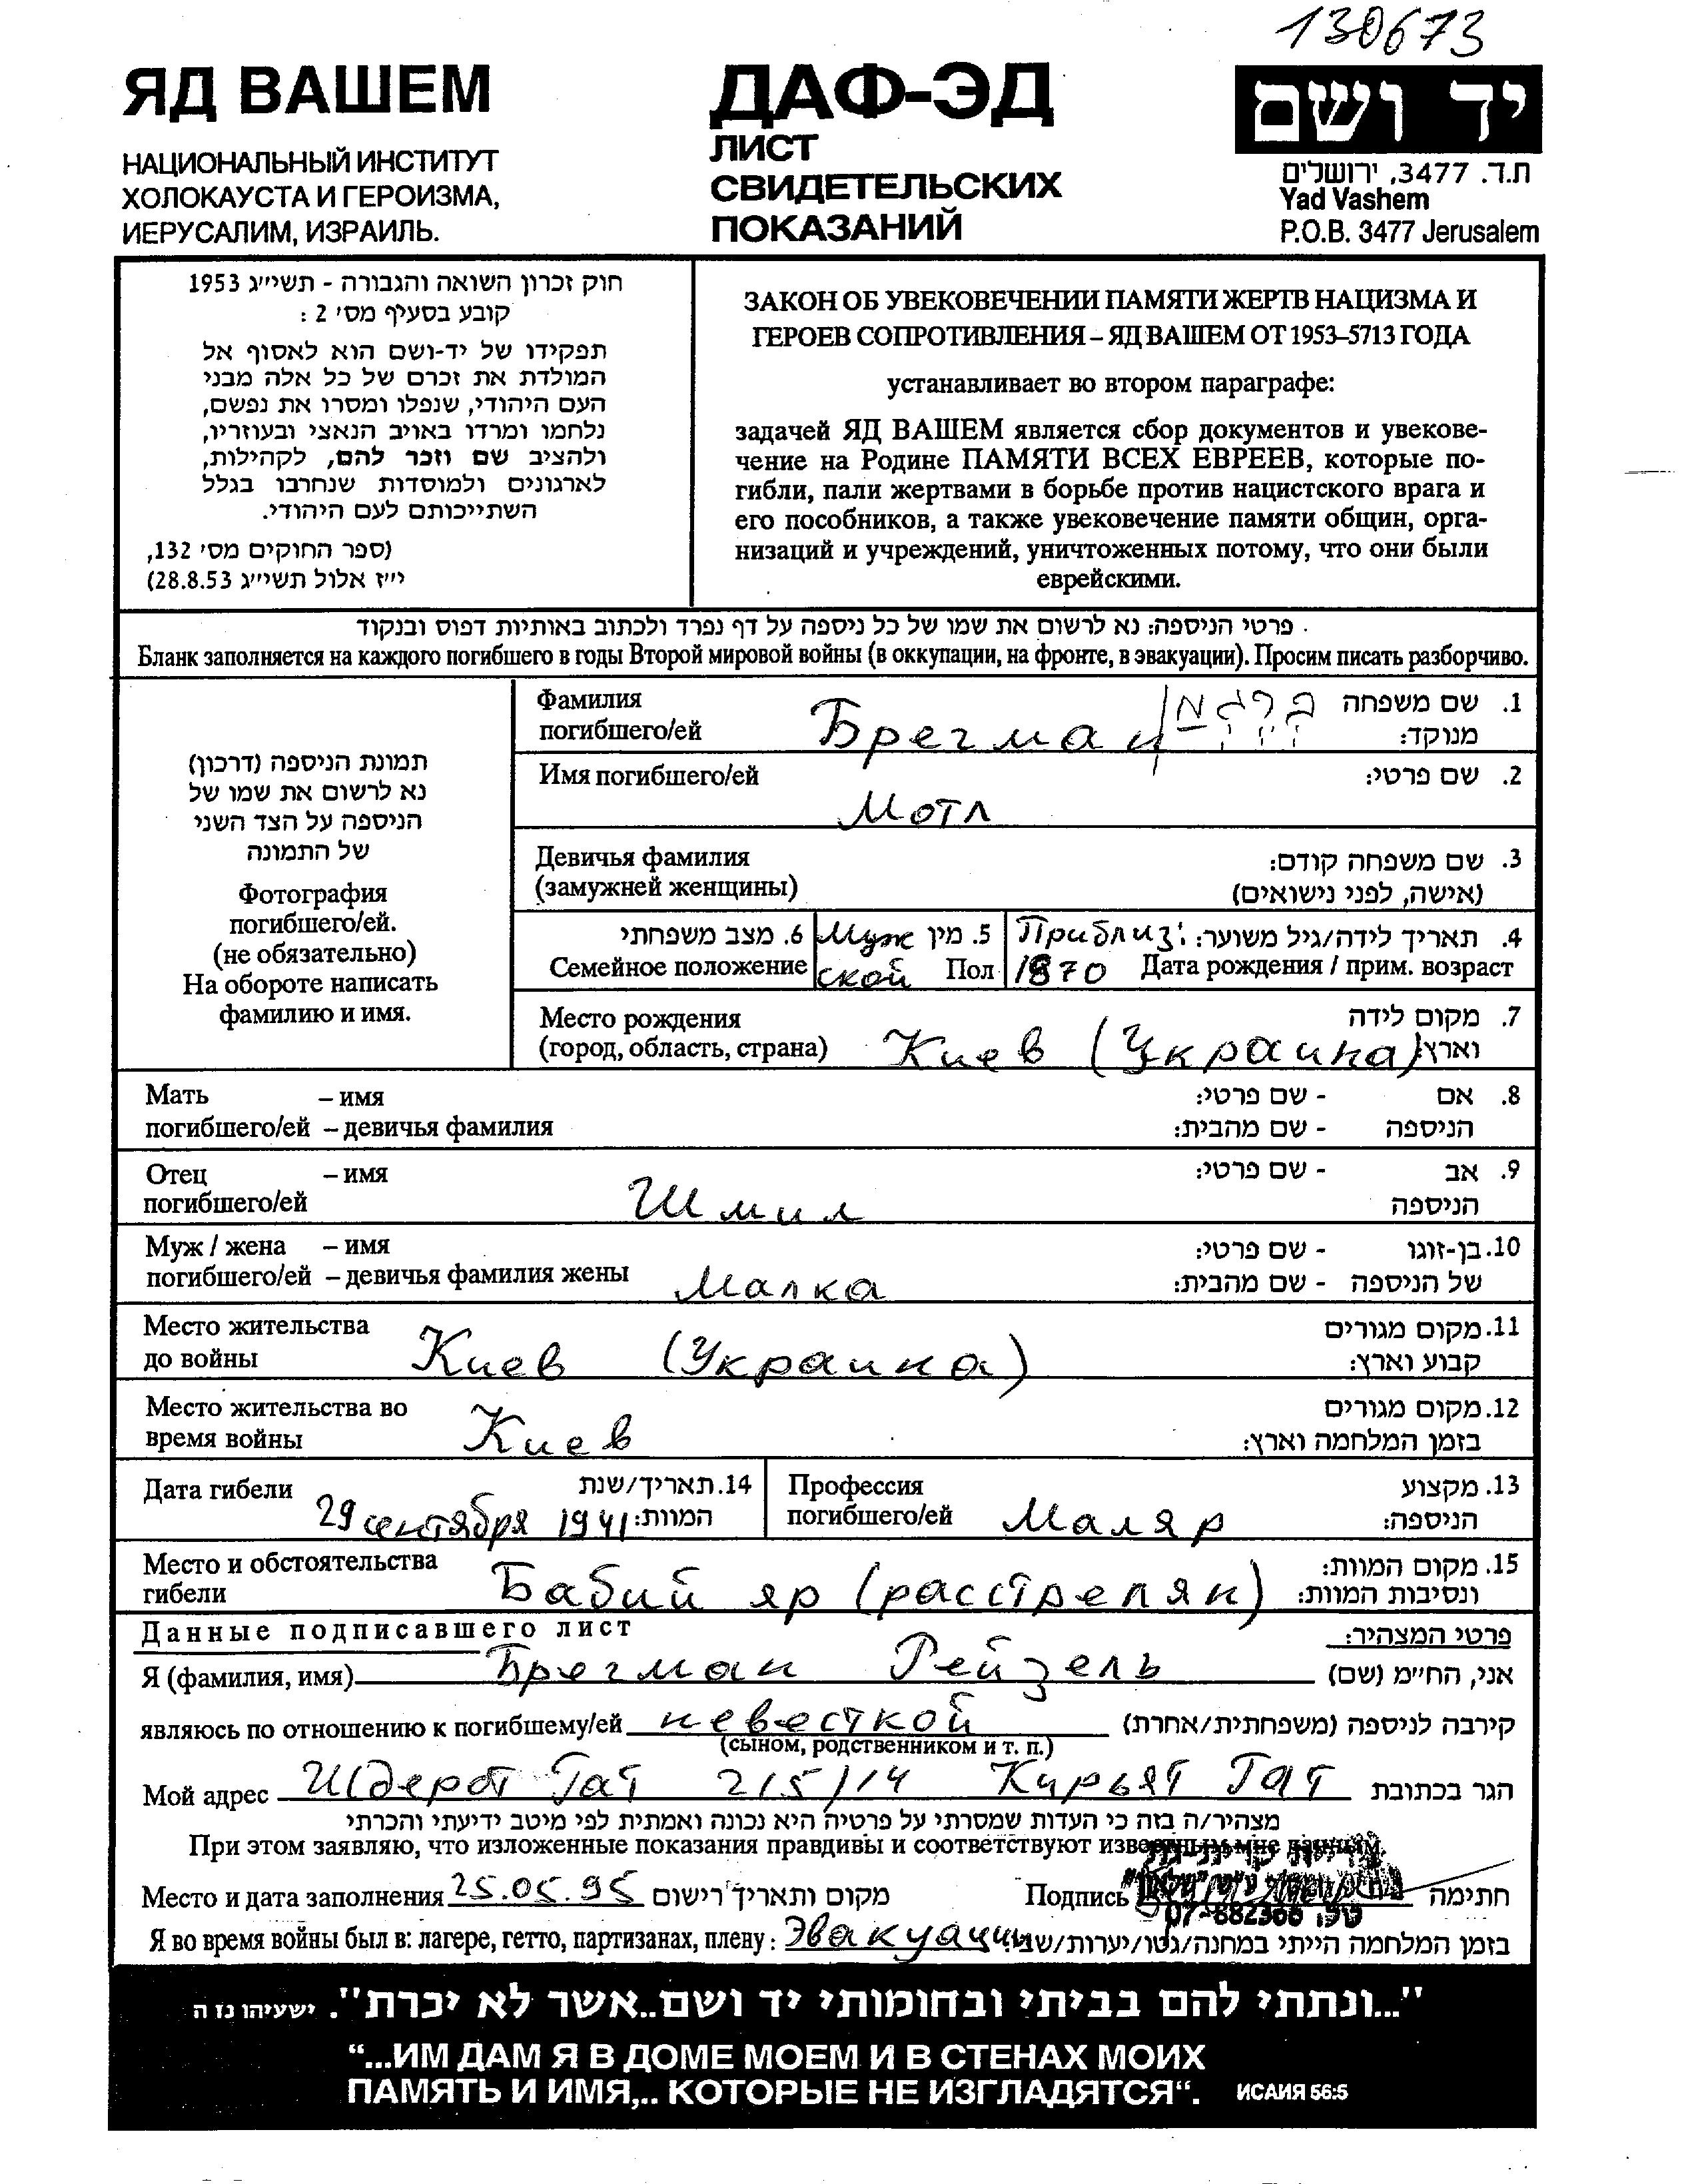 130673
ЯД ВАШЕМ
НАЦИОНАЛЬНЫЙ ИНСТИТУТ
ХОЛОКАУСТА И ГЕРОИЗМА,
ИЕРУСАЛИМ, ИЗРАИЛЬ.
ДАФ-ЭД
ЛИСТ
СВИДЕТЕЛЬСКИХ
ПОКАЗАНИЙ
יד ושם
ת.ד. 3477, ירושלים
Yad Vashem
P.O.B. 3477 Jerusalem
חוק זכרון השואה והגבורה - תשי״ג 1953
קובע בסעיף מס׳ 2 :
תפקידו של יד-ושם הוא לאסוף אל
המולדת את זכרם של כל אלה מבני
העם היהודי, שנפלו ומסרו את נפשם,
נלחמו ומרדו באויב הנאצי ובעוזריו,
ולהציב שם וזכר להם, לקהילות,
לארגונים ולמוסדות שנחרבו בגלל
השתייכותם לעם היהודי.
(ספר החוקים מס׳ 132,
י״ז אלול תשי״ג 28.8.53)
ЗАКОН ОБ УВЕКОВЕЧЕНИИ ПАМЯТИ ЖЕРТВ НАЦИЗМА И
ГЕРОЕВ СОПРОТИВЛЕНИЯ – ЯД ВАШЕМ ОТ 1953–5713 ГОДА
устанавливает во втором параграфе:
задачей ЯД ВАШЕМ является сбор документов и увекове-
чение на Родине ПАМЯТИ ВСЕХ ЕВРЕЕВ, которые по-
гибли, пали жертвами в борьбе против нацистского врага и
его пособников, а также увековечение памяти общин, орга-
низаций и учреждений, уничтоженных потому, что они были
еврейскими.
פרטי הניספה: נא לרשום את שמו של כל ניספה על דף נפרד ולכתוב באותיות דפוס ובנקוד
Бланк заполняется на каждого погибшего в годы Второй мировой войны (в оккупации, на фронте, в эвакуации). Просим писать разборчиво.
תמונת הניספה (דרכון)
נא לרשום את שמו של
הניספה על הצד השני
של התמונה
Фотография
погибшего/ей.
(не обязательно)
На обороте написать
фамилию и имя.
Фамилия 1. שם משפחה
погибшего/ей Брегман ברגמן מנוקד:
Имя погибшего/ей 2. שם פרטי:
Мотл
Девичья фамилия 3. שם משפחה קודם:
(замужней женщины) (אישה, לפני נישואים)
6. מצב משפחתי Муж 5. מין Приблиз. 4. תאריך לידה/גיל משוער:
Семейное положение ской Пол 1870 Дата рождения / прим. возраст
Место рождения 7. מקום לידה
(город, область, страна) Киев (Украина) וארץ:
Мать – имя 8. אם - שם פרטי:
погибшего/ей – девичья фамилия הניספה - שם מהבית:
Отец – имя 9. אב - שם פרטי:
погибшего/ей Шмил הניספה
Муж / жена – имя 10. בן-זוגו - שם פרטי:
погибшего/ей – девичья фамилия жены Малка של הניספה - שם מהבית:
Место жительства 11. מקום מגורים
до войны Киев (Украина) קבוע וארץ:
Место жительства во 12. מקום מגורים
время войны Киев בזמן המלחמה וארץ:
Дата гибели 14. תאריך/שנת Профессия 13. מקצוע
29 сентября 1941 המוות: погибшего/ей Маляр הניספה:
Место и обстоятельства 15. מקום המוות:
гибели Бабий яр (расстрелян) ונסיבות המוות:
Данные подписавшего лист פרטי המצהיר:
Я (фамилия, имя) Брегман Рейзель אני, הח״מ (שם)
являюсь по отношению к погибшему/ей невесткой קירבה לניספה (משפחתית/אחרת)
(сыном, родственником и т. п.)
Мой адрес Шдерот Гат 215/14 Кирьят Гат הגר בכתובת
מצהיר/ה בזה כי העדות שמסרתי על פרטיה היא נכונה ואמתית לפי מיטב ידיעתי והכרתי
При этом заявляю, что изложенные показания правдивы и соответствуют известным мне данным.
Место и дата заполнения 25.05.95 מקום ותאריך רישום Подпись חתימה
טל. 07-882366
Я во время войны был в: лагере, гетто, партизанах, плену: Эвакуации בזמן המלחמה הייתי במחנה/גטו/יערות/שבי:
"...ונתתי להם בביתי ובחומותי יד ושם..אשר לא יכרת". ישעיהו נז ה
“...ИМ ДАМ Я В ДОМЕ МОЕМ И В СТЕНАХ МОИХ
ПАМЯТЬ И ИМЯ,.. КОТОРЫЕ НЕ ИЗГЛАДЯТСЯ“. ИСАИЯ 56:5